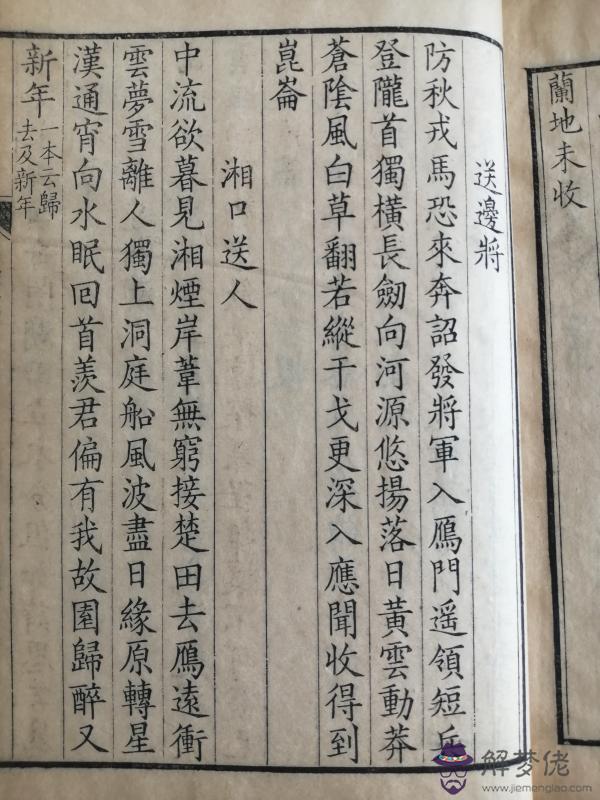 蘭地未收
送邊將
防秋戎馬恐來奔詔發將軍入鴈門遥領短兵
登隴首獨橫長劒向河源悠揚落日黃雲動莽
蒼陰風白草翻若縱干戈更深入應聞收得到
崑崙
湘口送人
中流欲暮見湘煙岸葦無窮接楚田去鴈遠衝
雲夢雪離人獨上洞庭船風波盡日緣原轉星
漢通宵向水眠回首羨君偏有我故園歸醉又
新年一本云歸去及新年
解梦佬
www.jiemenglao.com